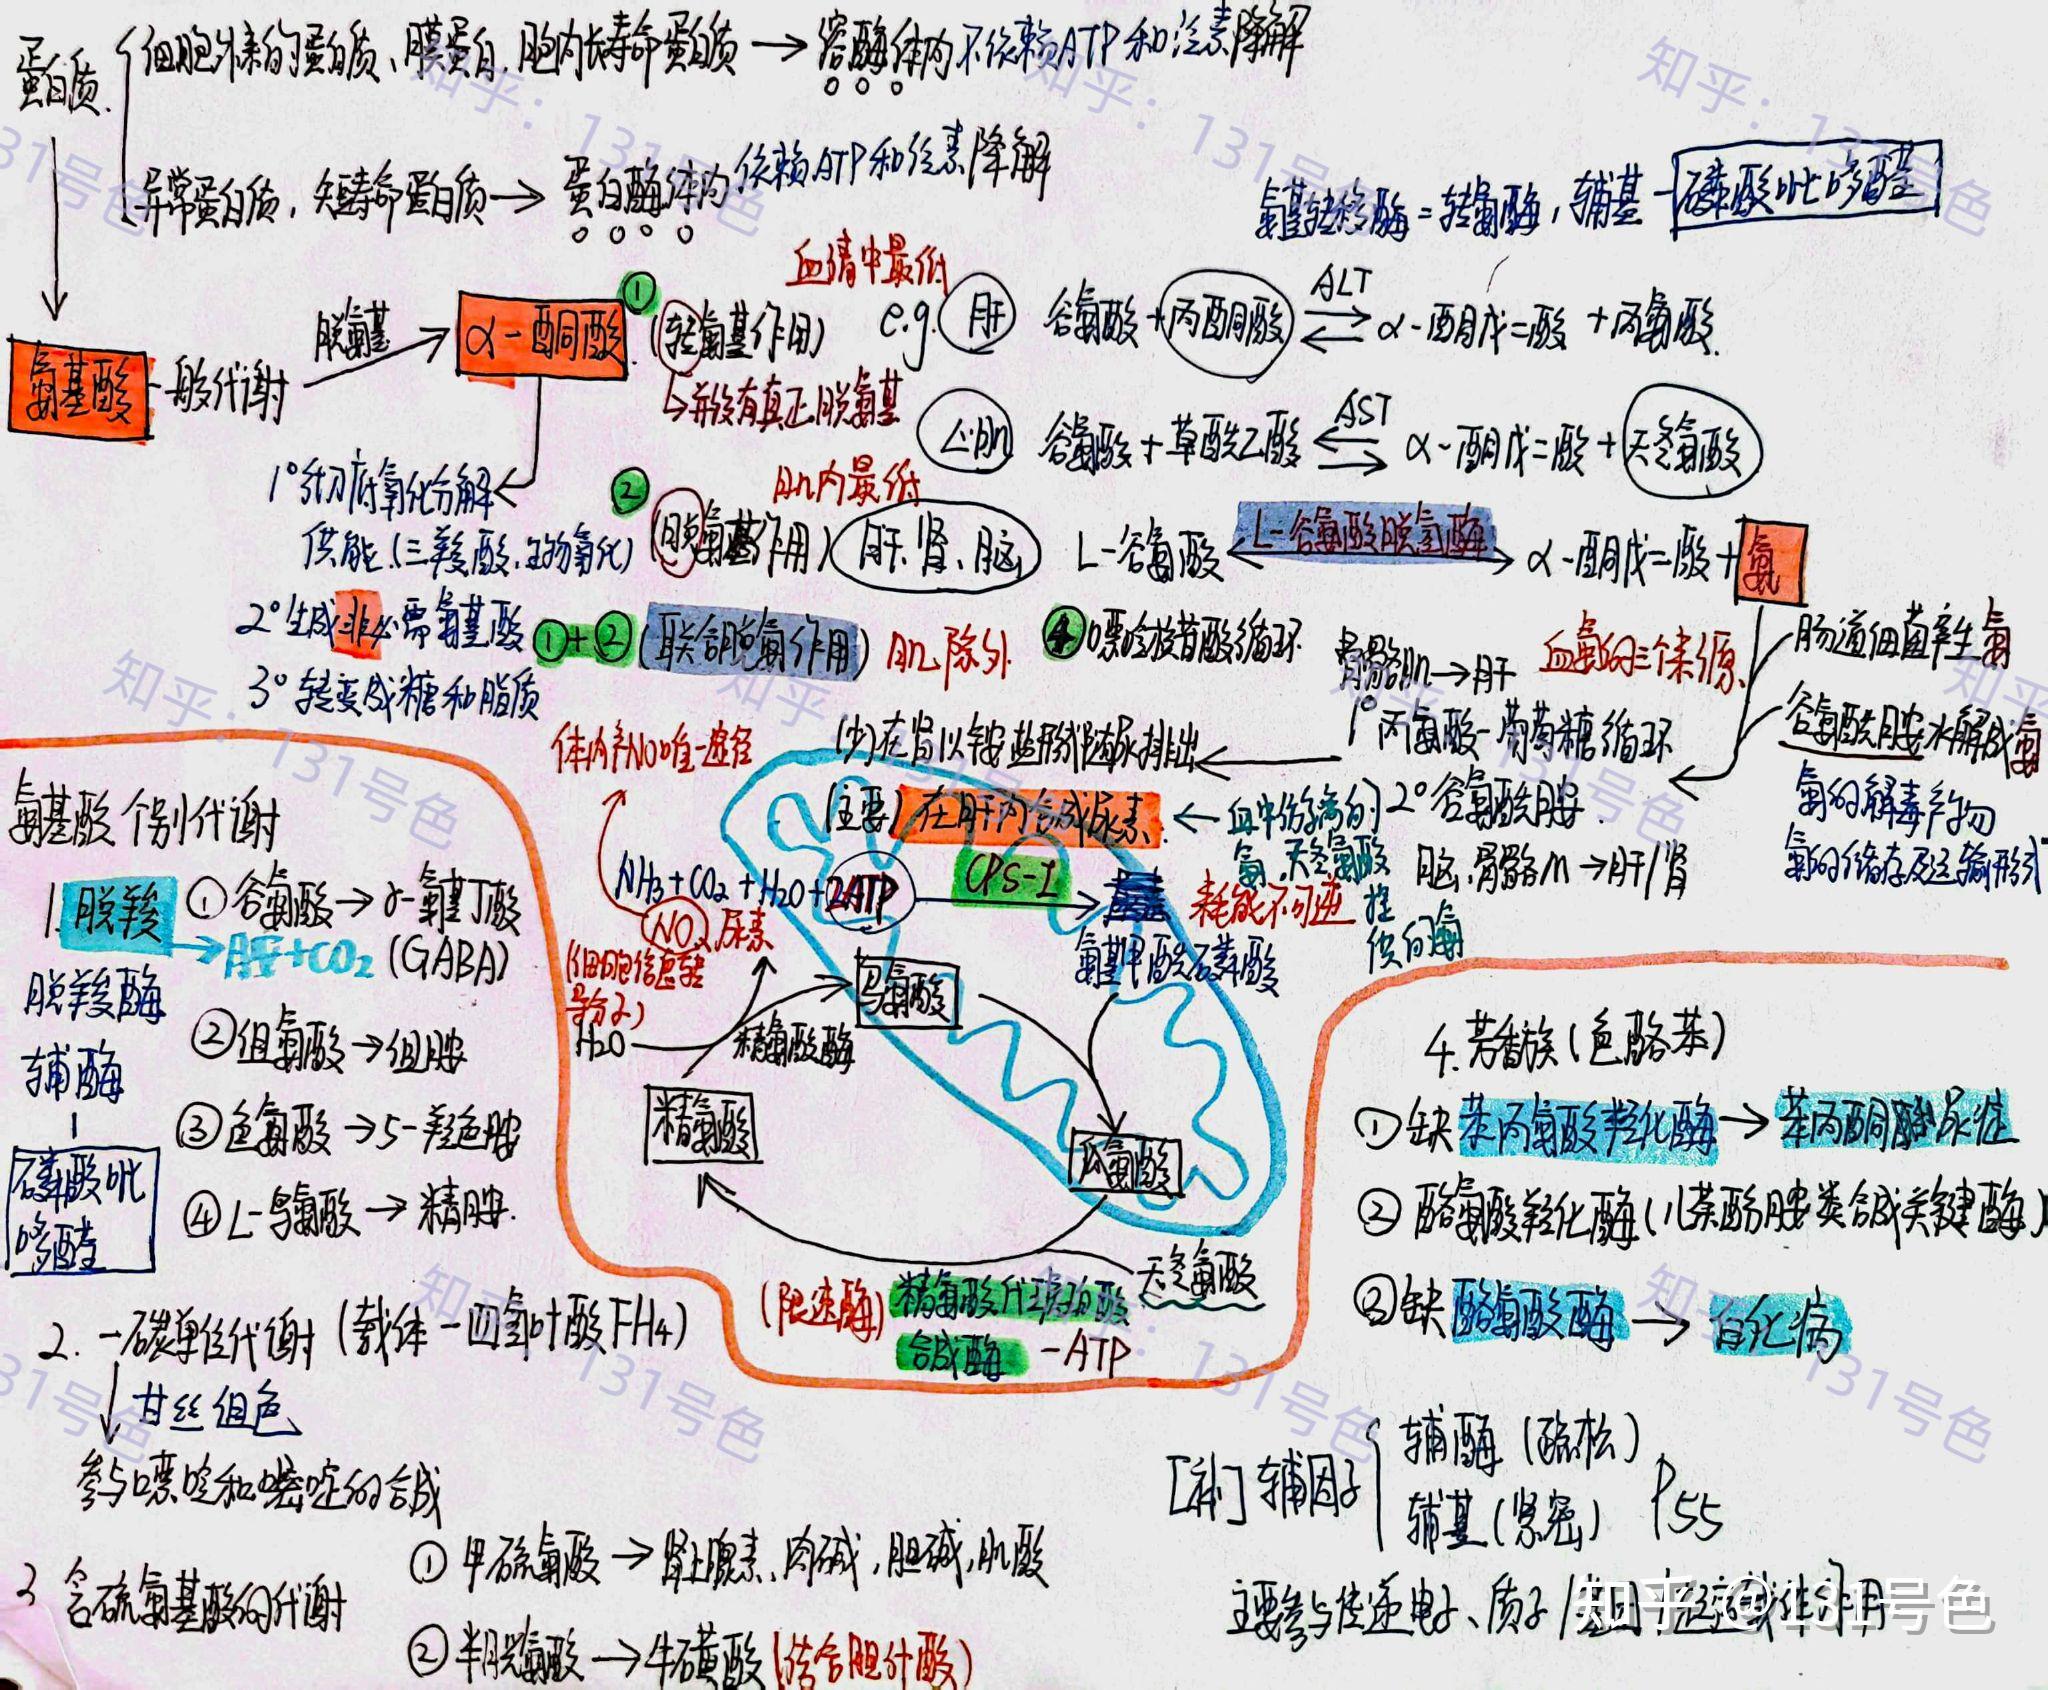 蛋白质
细胞外来的蛋白质、膜蛋白、胞内长寿命蛋白质→溶酶体内不依赖ATP和泛素降解
异常蛋白质,短寿命蛋白质→蛋白酶体内依赖ATP和泛素降解
氨基转移酶=转氨酶,辅基-磷酸吡哆醛
氨基酸 一般代谢 脱氨基 α-酮酸
① (转氨基作用) 血清中最低
↳并没有真正脱氨基
e.g. 肝 谷氨酸+丙酮酸 ALT α-酮戊二酸+丙氨酸
心肌 谷氨酸+草酰乙酸 AST α-酮戊二酸+天冬氨酸
1°彻底氧化分解
供能.(三羧酸、生物氧化)
2°生成非必需氨基酸
3°转变成糖和脂质
② (脱氨基作用) 肌内最低 肝、肾、脑
L-谷氨酸 L-谷氨酸脱氢酶 α-酮戊二酸+氨
①+②(联合脱氨作用) 肌除外
④嘌呤核苷酸循环
血氨的三个来源
肠道细菌产生氨
谷氨酰胺水解成氨
骨骼肌→肝
1°丙氨酸-葡萄糖循环
2°谷氨酰胺
脑、骨骼m→肝/肾
氨的解毒产物
氨的储存及运输形式
(少)在肾以铵盐形式随尿排出
(主要)在肝内合成尿素
←血中
氨、天冬氨酸
提供的氨
体内产NO唯一途径
NH₃+CO₂+H₂O+2ATP CPS-I
氨基甲酰磷酸
耗能不可逆
NO 尿素
(细胞信息转导分子)
H2O 精氨酸酶 鸟氨酸
精氨酸
瓜氨酸
天冬氨酸
(限速酶)精氨酸代琥珀酸
合成酶 -ATP
氨基酸个别代谢
1.脱羧→胺+CO₂
脱羧酶
辅酶
磷酸吡哆醛
①谷氨酸→γ-氨基丁酸
(GABA)
②组氨酸→组胺
③色氨酸→5-羟色胺
④L-鸟氨酸→精胺.
2.一碳单位代谢(载体-四氢叶酸FH₄)
甘丝组色
参与嘌呤和嘧啶的合成
3 含硫氨基酸的代谢
①甲硫氨酸→肾上腺素、肉碱,胆碱,肌酸
②半胱氨酸→牛磺酸(结合胆汁酸)
4.芳香族(色酪苯)
①缺苯丙氨酸羟化酶→苯丙酮酸尿症
②酪氨酸羟化酶(儿茶酚胺类合成关键酶)
③缺酪氨酸酶→白化病
[补]辅因子
辅酶(疏松)
辅基(紧密)
P55
主要参与传递电子、质子/基团
知乎 @131号色
知乎:131号色